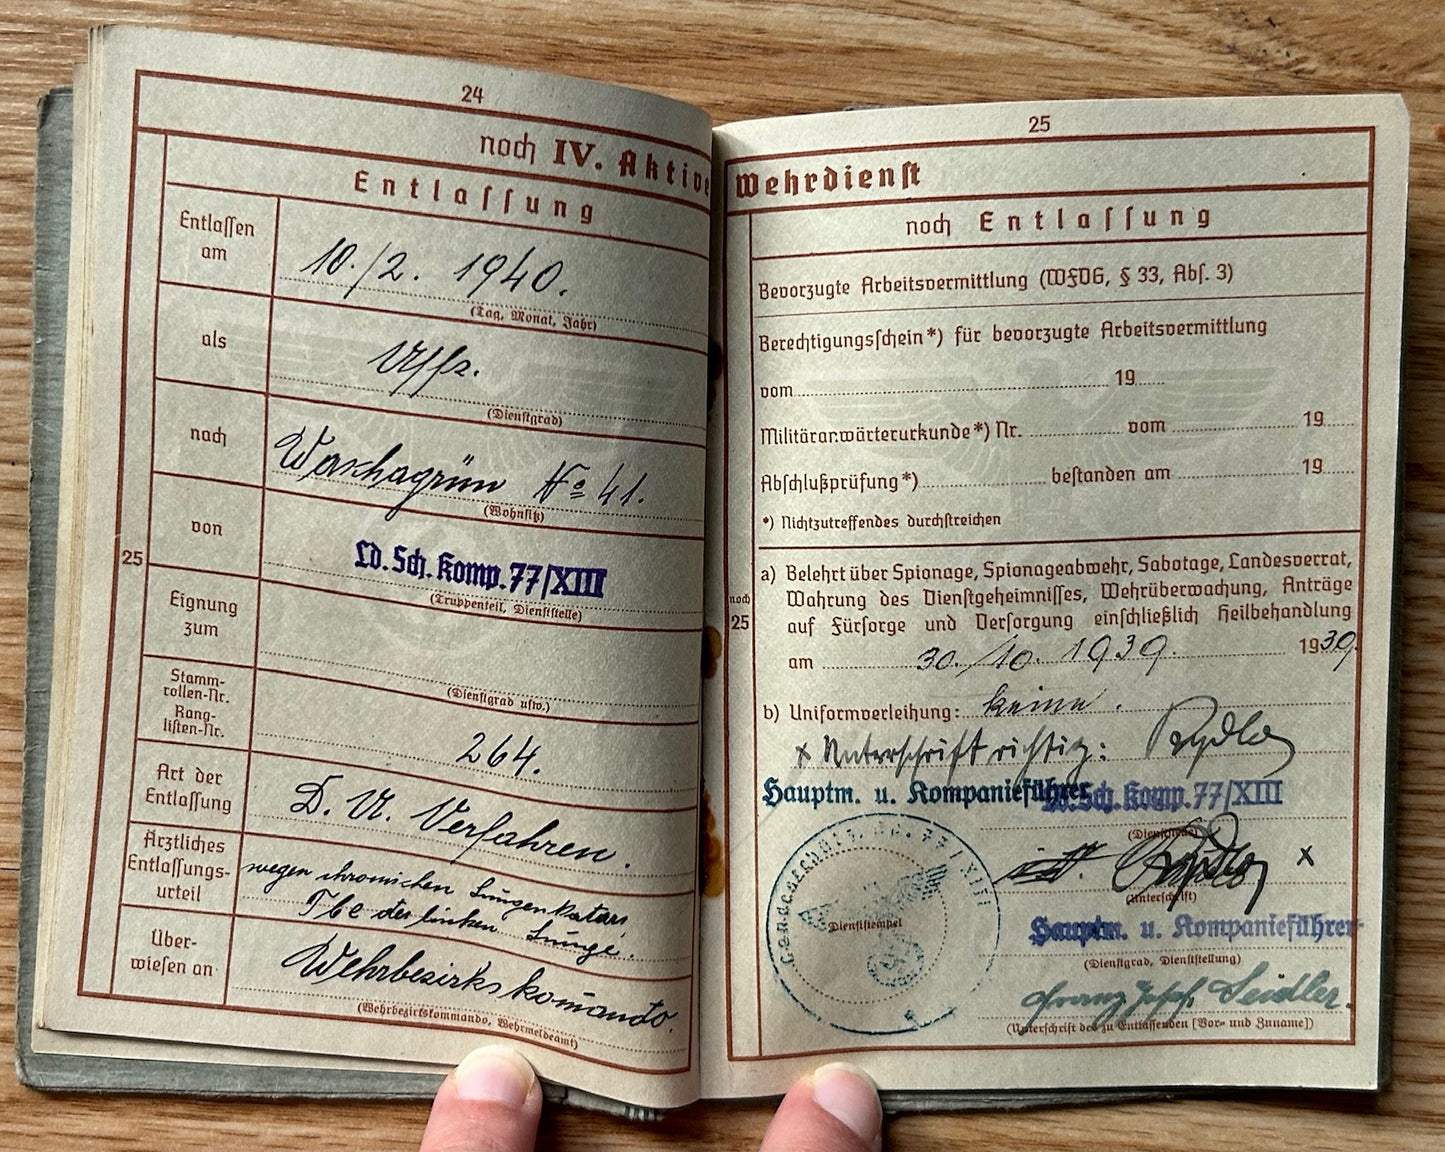 24
noch IV. Aktive
Entlassung
Entlassen
am
10./2. 1940.
(Tag, Monat, Jahr)
als
Uffz.
(Dienstgrad)
nach
Waschagrün No 41.
(Wohnsitz)
von
Ld. Sch. Komp. 77/XIII
(Truppenteil, Dienststelle)
25
Eignung
zum
(Dienstgrad usw.)
Stamm-
rollen-Nr.
Rang-
listen-Nr.
264.
Art der
Entlassung
D. U. Verfahren.
Ärztliches
Entlassungs-
urteil
wegen chronischen Lungenkatarr,
Tbc der linken Lunge.
Über-
wiesen an
Wehrbezirkskomando.
(Wehrbezirkskommando, Wehrmeldeamt)
25
Wehrdienst
noch Entlassung
Bevorzugte Arbeitsvermittlung (WFVG, § 33, Abs. 3)
Berechtigungsschein*) für bevorzugte Arbeitsvermittlung
vom 19
Militäranwärterurkunde*) Nr. vom 19
Abschlußprüfung*) bestanden am 19
*) Nichtzutreffendes durchstreichen
noch
25
a) Belehrt über Spionage, Spionageabwehr, Sabotage, Landesverrat,
Wahrung des Dienstgeheimnisses, Wehrüberwachung, Anträge
auf Fürsorge und Versorgung einschließlich Heilbehandlung
am 30./10. 1939. 1939.
b) Uniformverleihung: keine.
x Unterschrift richtig:
Hauptm. u. Kompanieführer
Ld. Sch. Komp. 77/XIII
(Dienststelle)
x
(Unterschrift)
Dienststempel
Hauptm. u. Kompanieführer
(Dienstgrad, Dienststellung)
Franz Josef Seidler.
(Unterschrift des zu Entlassenden [Vor- und Zuname])